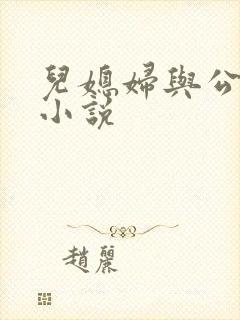 兒媳婦與公
小說
趙麗